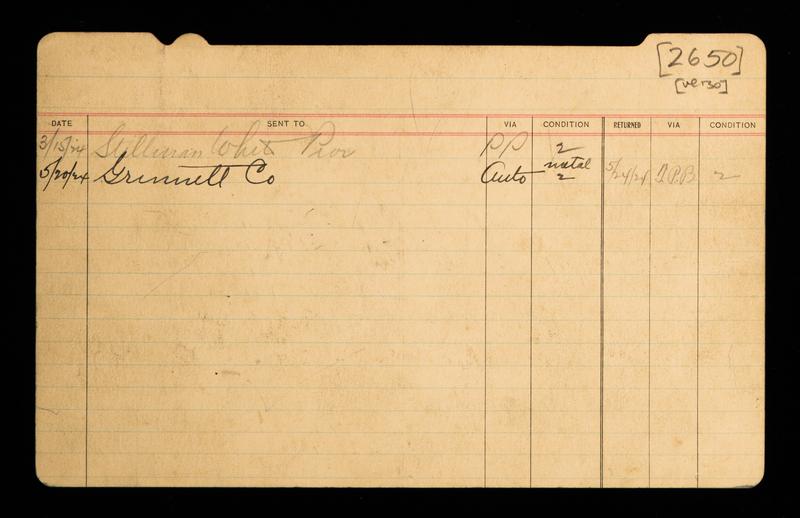 [2650]
[verso]
DATE SENT TO VIA CONDITION RETURNED VIA CONDITION
3/15/24 Stillman White Prov PP 2
metal
5/20/24 Grinnell Co Auto 2 5/24/24 P.B 2